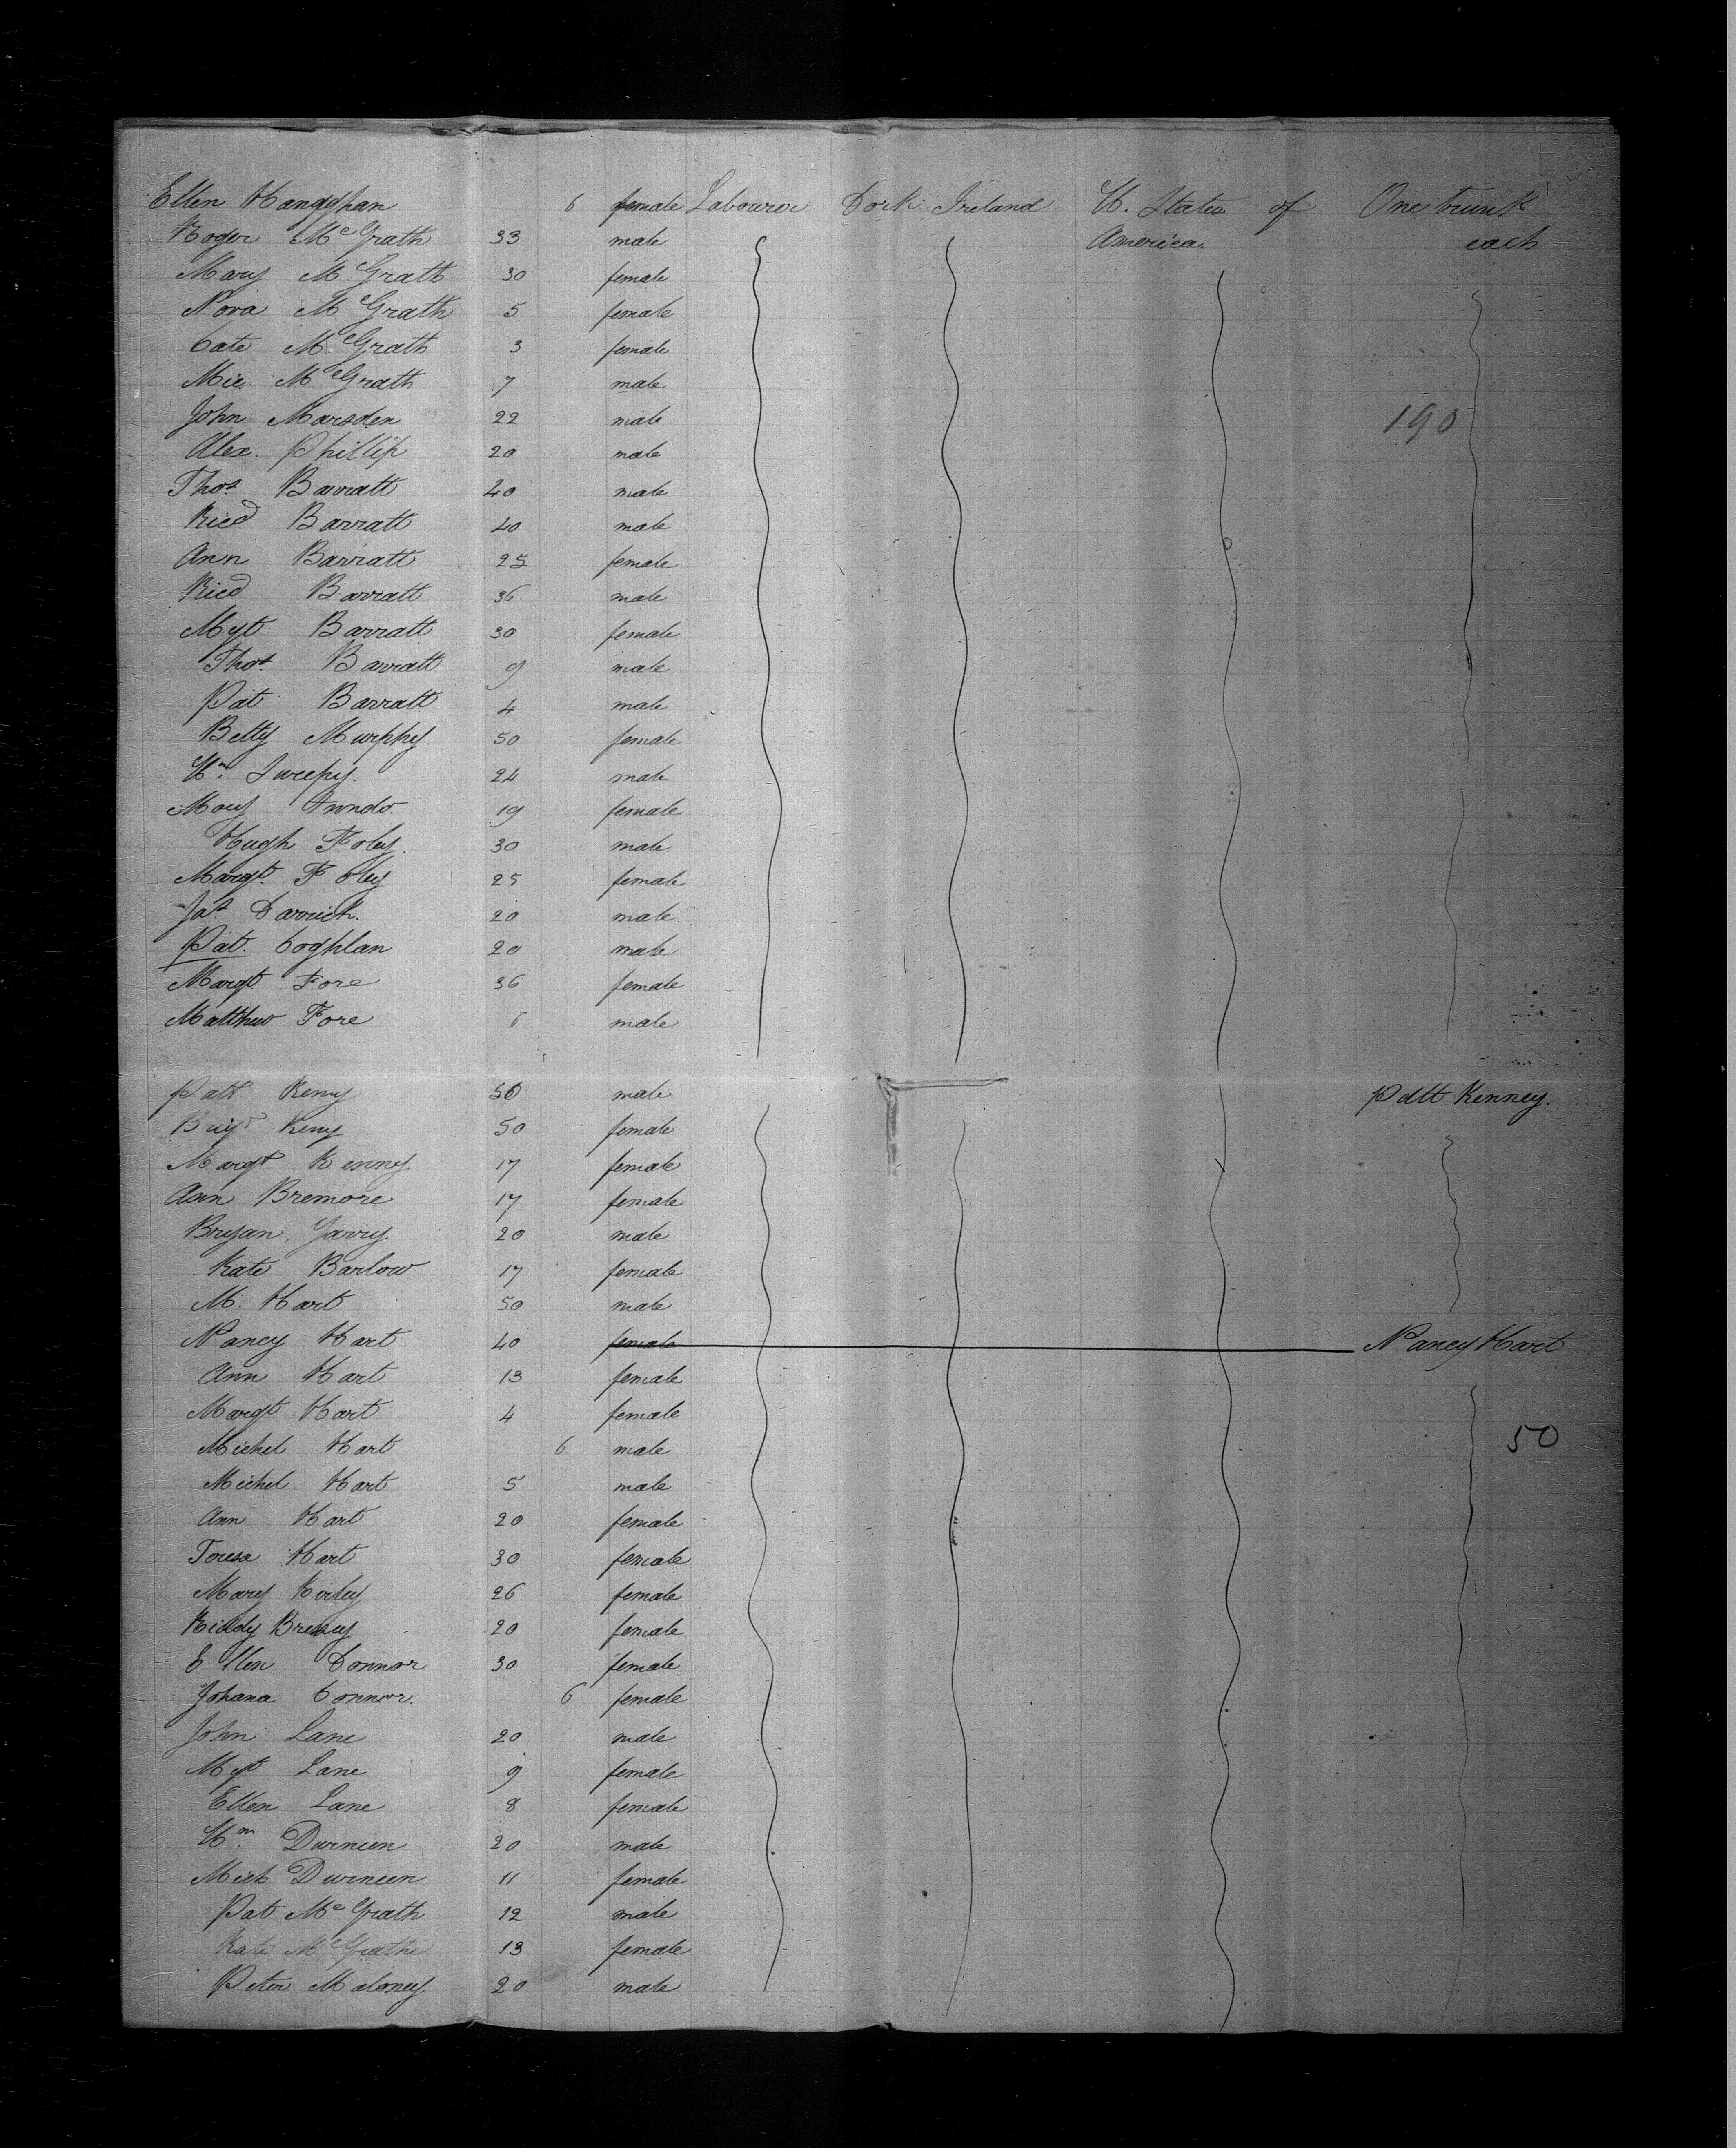 Ellen Hangghan 6 female Labourer Cork Ireland U. States of One trunk
Roger Mc Grath 33 male America. each
Mary Mc Grath 30 female
Nora Mc Grath 5 female
Cate Mc Grath 3 female
Mic. Mc Grath 7 male
John Marsden 22 male
190
Alex. Phillip 20 male
Thos Barratt 40 male
Ricd Barratt 40 male
Ann Barratt 25 female
Ricd Barratt 36 male
Mgt Barratt 30 female
Thos Barratt 9 male
Pat Barratt 4 male
Betty Murphy 50 female
Wm 24 male
Mary 19 female
Hugh Foley. 30 male
Margt. Foley 25 female
Jas Carrick. 20 male
Pat. Coghlan 20 male
Margt Fore 36 female
Matthew Fore 6 male
Patt Keny 50 male Patt Kenney.
Brigt Keny 50 female
Margt Kenny 17 female
Ann Bremore 17 female
Bryan Garry. 20 male
Kate Barlow 17 female
M. Hart 50 male
Nancy Hart 40 female Nancy Hart
Ann Hart 13 female
Margt Hart 4 female
50
Michel Hart 6 male
Michel Hart 5 male
Ann Hart 20 female
Teresa Hart 30 female
Mary Kirley 26 female
Biddy 20 female
Ellen Connor 30 female
Johana Connor. 6 female
John Lane 20 male
Mgt Lane 9 female
Ellen Lane 8 female
Wm Durneen 20 male
Durneen 11 female
Pat Mc Grath 12 male
Kate Mc Grathe 13 female
Peter Maloney 20 male